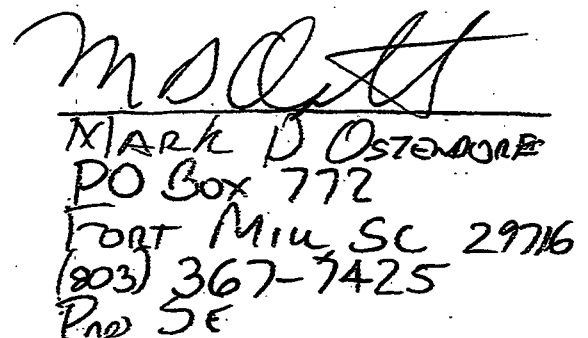 MARK D OSTENDORF
PO BOX 772
FORT MILL SC 29716
(803) 367-7425
PRO SE